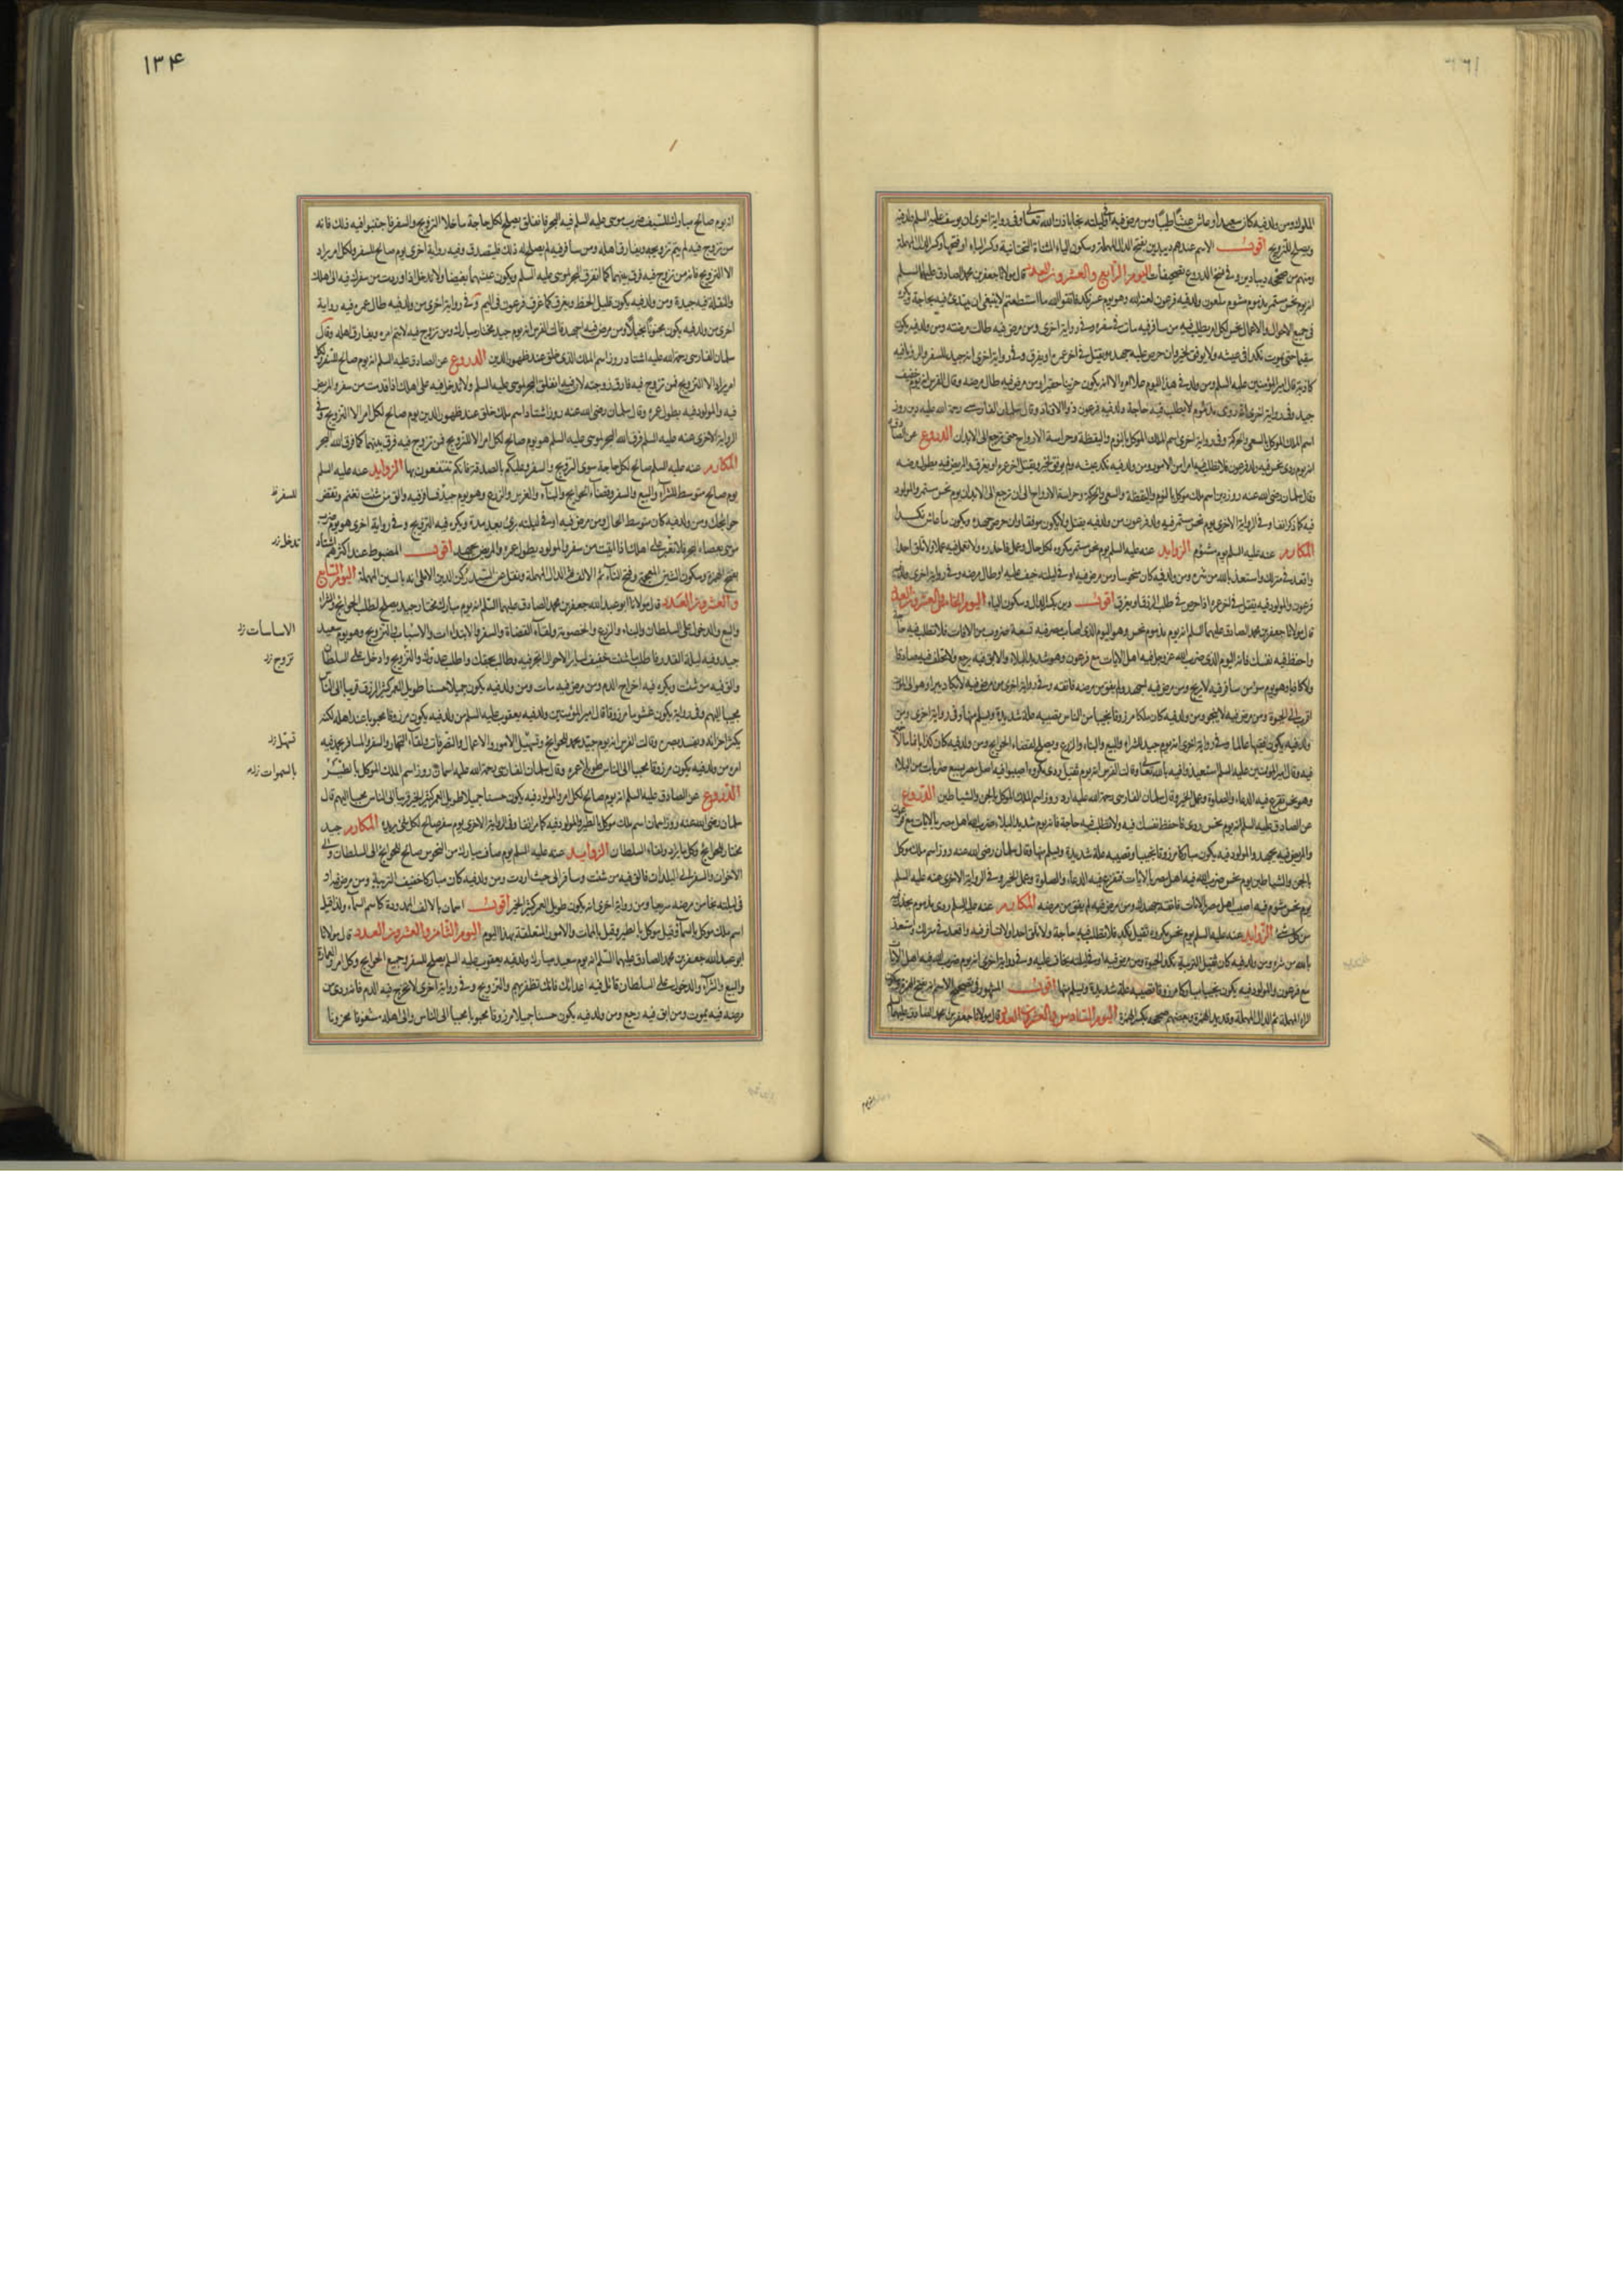 الملوك ومن ولد فيه كان سعيدا وعاش عيشا طيبا ومن مرض فيه او في ليلته نجا باذن الله تعالى وفي رواية اخرى ان يوسف عليه السلم ولد فيه
ويصلح للتزويج اقول الاسم عندهم ديبدين بفتح الدال المهملة وسكون الياء المثناة التحتانية وكسر الباء
ومنهم من صحفه وفي نسخ الدروع تصحيفات اليوم الرابع والعشرون العدد قال مولانا جعفر بن محمد الصادق عليهما السلم
انه يوم نحس مستمر مذموم مشوم ملعون ولد فيه فرعون لعنه الله وهو يوم عسر نكد فاتقوا الله ما استطعتم لا ينبغي ان يبتدئ فيه بحاجة
في جميع الاحوال والاعمال نحس لكل امر يطلب فيه من سافر فيه مات في سفره وفي رواية اخرى ومن مرض فيه طالت مرضته ومن ولد فيه يكون
سقيما حتى يموت نكدا في عيشه ولا يوفق لخير وان حرص عليه جهده ويقتل في اخر عمره او يغرق وفي رواية اخرى انه جيد للسفر والرؤيا فيه
كاذبة قال امير المؤمنين عليه السلم ومن ولد في هذا اليوم علا امره الا انه يكون حزينا حقيرا ومن مرض فيه طال مرضه وقال الفرس انه يوم خفيف
جيد وفي رواية اخرى انه ردى مذموم لا يطلب فيه حاجة ولد فيه فرعون ذو الاوتاد وقال سلمان الفارسي رحمة الله عليه دين روز
اسم الملك الموكل بالسعي والحركة وفي رواية اخرى اسم الملك الموكل بالنوم واليقظة وحراسة الارواح حتى ترجع الى الابدان الدروع عن الصادق
انه يوم ردى نحس فيه ولد فرعون فلا تطلب فيه امرا من الامور ومن ولد فيه نكد عيشه ولم يوفق لخير ويقتل اخر عمره او يغرق والمريض فيه يطول مرضه
وقال سلمان رضي الله عنه روز دين اسم ملك موكل بالنوم واليقظة والسعي والحركة وحراسة الارواح الى ان ترجع الى الابدان يوم نحس مستمر والمولود
فيه كما ذكر انفا وفي الرواية الاخرى يوم نحس مستمر فيه ولد فرعون من ولد فيه يقتل ولا يكون موفقا وان حرص جهده ويكون ما عاش نكدا
المكارم عنه عليه السلم يوم مشؤم الزوايد عنه عليه السلم يوم نحس مستمر مكروه لكل حال وعمل فاحذره ولا تعمل فيه عملا ولا تلق احدا
واقعد في منزلك واستعذ بالله من شره ومن ولد فيه كان منحوسا ومن مرض فيه او في ليلته خيف عليه او طال مرضه وفي رواية اخرى
فرعون والمولود فيه يقتل في اخر عمره اذا حرص في طلب الرزق او يغرق اقول دين بكسر الدال وسكون الياء اليوم الخامس والعشرون العدد
قال مولانا جعفر بن محمد الصادق عليهما السلم انه يوم مذموم نحس وهو اليوم الذي اصاب مصر فيه تسعة ضروب من الافات فلا تطلب فيه حاجة
واحفظ فيه نفسك فانه اليوم الذي ضرب الله عز وجل فيه اهل الايات مع فرعون وهو شديد البلاء والابق فيه يرجع ولا تحلف فيه صادقا
ولا كاذبا وهو يوم سوء من سافر فيه لا يربح ومن مرض فيه اجهد ولم يفق من مرضه فاتقه وفي رواية اخرى من مرض فيه لا يكاد يبرا وهو الى الموت
اقرب الى الحيوة ومن مرض فيه لا ينجو ومن ولد فيه كان ملكا مرزوقا نجيبا من الناس تصيبه علة شديدة ويسلم منها وفي رواية اخرى ومن
ولد فيه يكون فقيها عالما وفي رواية اخرى انه يوم جيد للشراء والبيع والبناء والزرع ويصلح لقضاء الحوايج ومن ولد فيه كان كذابا نماما لا خير
فيه وقال امير المؤمنين عليه السلم استعيذوا فيه بالله تعالى وقالت الفرس انه يوم ثقيل ردى مكروه اصيبوا فيه اهل مصر بسبع ضربات من البلاء
وهو نحس تفرغ فيه للدعاء والصلوة وعمل الخير وقال سلمان الفارسي رحمة الله عليه ارد روز اسم الملك الموكل بالجن والشياطين الدروع
عن الصادق عليه السلم انه يوم نحس ردى فاحفظ نفسك فيه ولا تطلب فيه حاجة فانه يوم شديد البلاء ضرب الله اهل مصر بالايات مع فرعون
والمريض فيه يجهد والمولود فيه يكون مباركا مرزوقا نجيبا وتصيبه علة شديدة ويسلم منها وقال سلمان رضي الله عنه روز اسم ملك موكل
بالجن والشياطين يوم نحس ضرب الله فيه اهل مصر بالايات تفرغ فيه للدعاء والصلوة وعمل الخير وفي الرواية الاخرى عنه عليه السلم
يوم نحس مشؤم فيه اصيب اهل مصر بالايات فاتقه جهدك ومن مرض فيه لم يفق من مرضه المكارم عنه عليه السلم ردى مذموم يحذر فيه
من كل شئ الزوايد عنه عليه السلم يوم نحس مكروه ثقيل نكد فلا تطلب فيه حاجة ولا تلق احدا ولا تسافر فيه واقعد في منزلك واستعذ
بالله من شره ومن ولد فيه كان ثقيل التربية نكد الحيوة ومن مرض فيه او في ليلته يخاف عليه وفي رواية اخرى انه يوم ضرب الله فيه اهل الايات
مع فرعون والمولود فيه يكون نجيبا مباركا مرزوقا تصيبه علة شديدة ويسلم منها اقول المشهور في تصحيح الاسم انه بفتح الهمزة
الراء المهملة ثم الدال المهملة وقد يمد الهمزة وبعضهم صححه بكسر الهمزة اليوم السادس والعشرون العدد قال مولانا جعفر بن محمد الصادق عليهما
١٣۴
انه يوم صالح مبارك للسيف ضرب موسى عليه السلم فيه البحر فانفلق يصلح لكل حاجة ما خلا التزويج والسفر فاجتنبوا فيه ذلك فانه
من تزوج فيه لم يتم تزويجه ويفارق اهله ومن سافر فيه لم يصلح له ذلك فليتصدق وفيه رواية اخرى يوم صالح للسفر ولكل امر يراد
الا التزويج فانه من تزوج فيه فرق بينهما كما انفرق البحر لموسى عليه السلم ويكون عيشهما بغيضا ولا تدخل اذا وردت من سفرك فيه الى اهلك
والنقلة فيه جيدة ومن ولد فيه يكون قليل الحظ ويغرق كما غرق فرعون في اليم وفي رواية اخرى من ولد فيه طال عمره فيه رواية
اخرى من ولد فيه يكون مجنونا بخيلا ومن مرض فيه اجهد قالت الفرس انه يوم جيد مختار مبارك ومن تزوج فيه لا يتم امره ويفارق اهله وقال
سلمان الفارسي رحمة الله عليه اشتاد روز اسم الملك الذي خلق عند ظهور الدين الدروع عن الصادق عليه السلم انه يوم صالح للسفر ولكل
امر يراد الا التزويج فمن تزوج فيه فارق زوجته لان فيه انفلق البحر لموسى عليه السلم ولا تدخل فيه على اهلك اذا قدمت من سفر والمريض
فيه والمولود فيه يطول عمره وقال سلمان رضي الله عنه روز اشتاد اسم ملك خلق عند ظهور الدين يوم صالح لكل امر الا التزويج وفي
الرواية الاخرى عنه عليه السلم فرق الله البحر لموسى عليه السلم هو يوم صالح لكل امر الا التزويج فمن تزوج فيه فرق بينهما كما فرق الله البحر
المكارم عنه عليه السلم صالح لكل حاجة سوى التزويج والسفر وعليكم بالصدقة فانكم تنتفعون بها الزوايد عنه عليه السلم
يوم صالح متوسط للشراء والبيع والسفر وقضاء الحوايج والبناء والغرس والزرع وهو يوم جيد فسافر فيه والق من شئت تغنم وتقض
حوائجك ومن ولد فيه كان متوسط الحال ومن مرض فيه او في ليلته برئ بعد مدة ويكره فيه التزويج وفي رواية اخرى هو يوم ضرب
موسى بعصاه البحر فلا تغير على اهلك اذا اتيت من سفر والمولود يطول عمره والمريض يجهد اقول المضبوط عند اكثرهم اشتاد
بفتح الهمزة وسكون الشين المعجمة وفتح التاء ثم الالف ثم الدال المهملة ونقل عن السيد ركن الدين الاملي انه بالسين المهملة اليوم السابع
والعشرون العدد قال مولانا ابو عبد الله جعفر بن محمد الصادق عليهما السلم انه يوم مبارك مختار جيد يصلح لطلب الحوايج والشراء
والبيع والدخول على السلطان والبناء والزرع والخصومة ولقاء القضاة والسفر والابتداءات والاسباب والتزويج وهو يوم سعيد
جيد وفيه ليلة القدر فاطلب ما شئت خفيف لساير الاحوال اتجر فيه وطالب بحقك واطلب عدوك والتزويج وادخل على السلطان
والق فيه من شئت ويكره فيه اخراج الدم ومن مرض فيه مات ومن ولد فيه يكون جميلا حسنا طويل العمر كثير الرزق قريبا الى الناس
محببا اليهم وفي رواية يكون غشوما مرزوقا قال امير المؤمنين ولد فيه يعقوب عليه السلم من ولد فيه يكون مرزوقا محبوبا عند اهله لكنه
يكثر احزانه ويفسد بصره وقالت الفرس انه يوم جيد يحمد للحوايج وتسهيل الامور والاعمال والتصرفات ولقاء التجار والسفر والمسافر يحمد فيه
امره من ولد فيه يكون مرزوقا محببا الى الناس طويلا عمره وقال سلمان الفارسي رحمة الله عليه اسمان روز اسم الملك الموكل بالطير
الدروع عن الصادق عليه السلم انه يوم صالح لكل امر والمولود فيه يكون حسنا جميلا طويل العمر كثير الخير قريبا الى الناس محببا اليهم قال
سلمان رضي الله عنه روز اسمان اسم ملك موكل بالطير والمولود فيه كما مر انفا وفي الرواية الاخرى يوم سفر صالح لكل شئ يريده المكارم جيد
مختار للحوايج وكل ما يراد ولقاء السلطان الزوايد عنه عليه السلم يوم صاف مبارك من النحوس صالح للحوايج الى السلطان والى
الاخوان والسفر الى البلدان فالق فيه من شئت وسافر الى حيث اردت ومن ولد فيه كان مباركا خفيف التربية ومن مرض فيه او
في ليلته نجا من مرضه سريعا ومن رواية اخرى انه يكون طويل العمر كثير الخير اقول اسمان بالالف الممدودة كاسم السماء ولذا قيل
اسم ملك موكل بالسماء وقيل موكل بالطير وقيل بالممات والامور المتعلقة بهذا اليوم اليوم الثامن والعشرون العدد قال مولانا
ابو عبد الله جعفر بن محمد الصادق عليهما السلم انه يوم سعيد مبارك ولد فيه يعقوب عليه السلم يصلح للسفر وجميع الحوايج وكل امر والعمارة
والبيع والشراء والدخول على السلطان قاتل فيه اعدائك فانك تظفر بهم والتزويج وفي رواية اخرى لا تخرج فيه الدم فانه ردى من
مرض فيه يموت ومن ابق فيه رجع ومن ولد فيه يكون حسنا جميلا مرزوقا محبوبا محببا الى الناس والى اهله مشغوفا محزونا
للسفر
تدخل زد
الاساسات زد
تزوج زد
تسهل زد
بالسموات زد